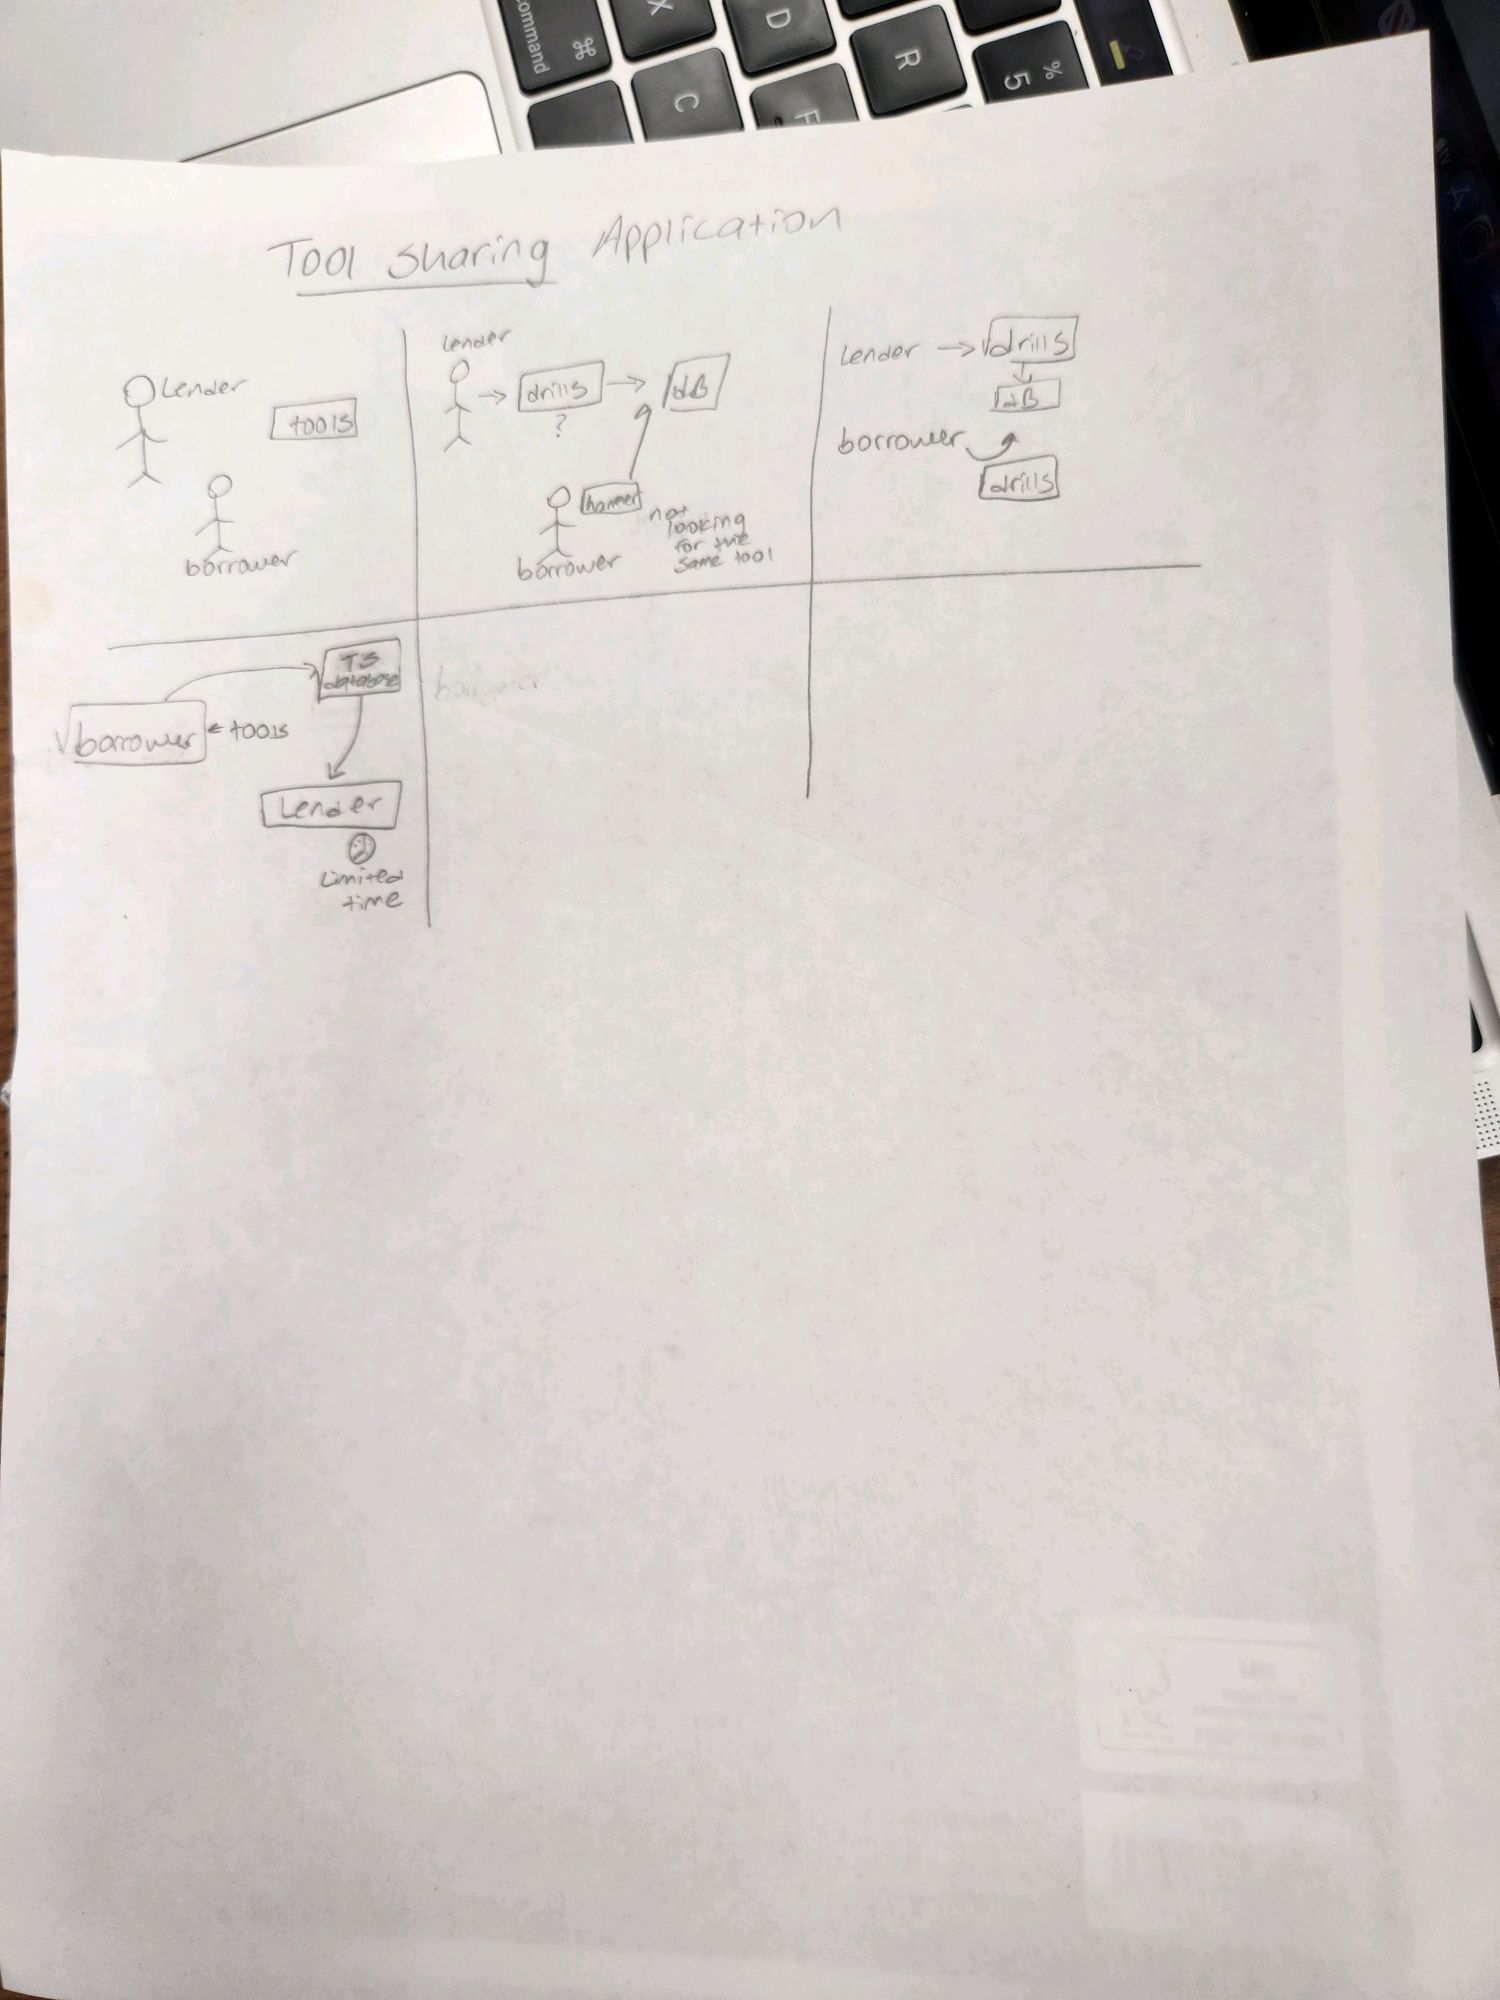 command
⌘
X
D
C
R
F
%
5
Tool Sharing Application
Lender
tools
borrower
lender
drills
?
dB
hammer
not
looking
for the
same tool
borrower
Lender
drills
dB
borrower
drills
TS
database
borrower
tools
Lender
Limited
time
borrower